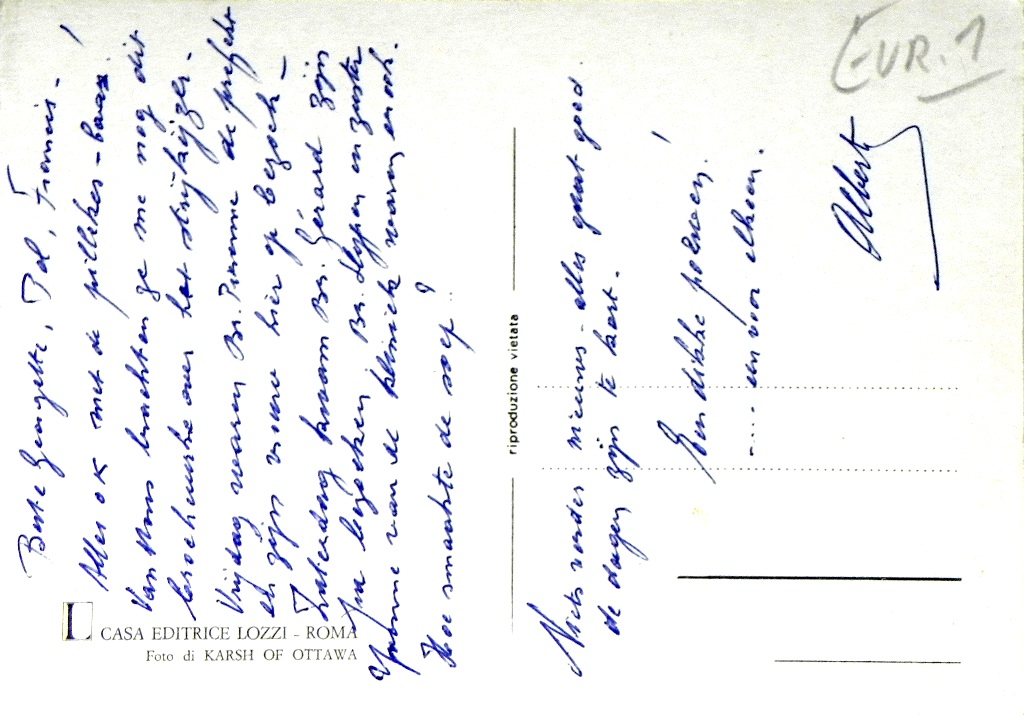 Beste Georgette, Pol, Francis. !
Alles OK met de pillekes-baas.
Van Mons brachten ge me nog dit
brochuurke over het strijkijzer.
Vrijdag waren Br. Pierenne de prefekt
en zijn vrouw hier op bezoek -
Zaterdag kwam Br. Gérard zijn
bezoeken Br. en zuster
Yvonne van de kliniek waren er ook.
Hoe smaakte de soep?
Niets verder nieuws - alles gaat goed
de dagen zijn te kort.
Een dikke poleen!
.... en voor elkeen.
Albert
EUR. 1
riproduzione vietata
L CASA EDITRICE LOZZI - ROMA
Foto di KARSH OF OTTAWA